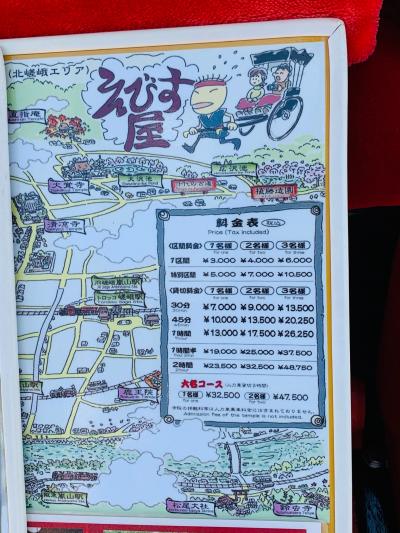 (北嵯峨エリア)
えびす屋
直指庵
大覚寺
大沢池
広沢池
清凉寺
JR嵯峨嵐山駅
トロッコ嵯峨駅
鹿王院
松尾大社
鈴虫寺
料金表 税込
Price (Tax included)
(区間料金) 1名様 2名様 3名様
for one for two for three
1区間 ¥3,000 ¥4,000 ¥6,000
特別区間 ¥5,000 ¥7,000 ¥10,500
(貸切料金) 1名様 2名様 3名様
for one for two for three
30分 ¥7,000 ¥9,000 ¥13,500
45分 ¥10,000 ¥13,500 ¥20,250
1時間 ¥13,000 ¥17,500 ¥26,250
1時間半 ¥19,000 ¥25,000 ¥37,500
2時間 ¥23,500 ¥32,500 ¥48,750
大名コース (人力車貸切2時間)
1名様 ¥32,500 2名様 ¥47,500
for one for two
Admission fee of the temple is not included.